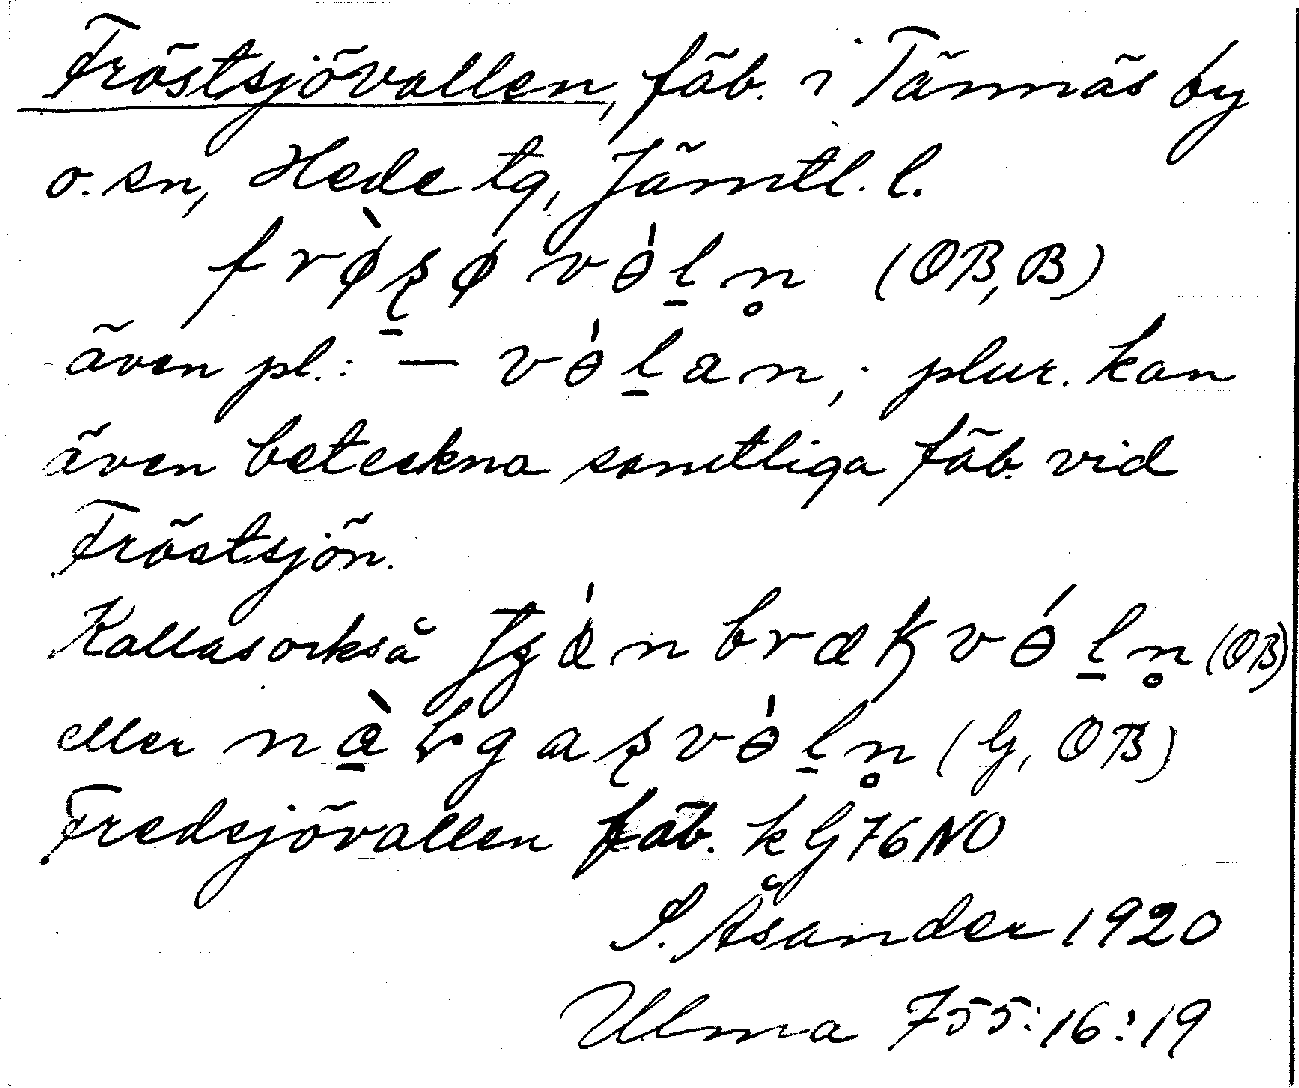 Fröstsjövallen, fäb. i Tännäs by
o. sn, Hede tg, Jämtl. l.
frø̀ʂ̱ø vɵ́ḻn̥ (OB, B)
även pl.: — vɵ́ḻan; plur. kan
även beteckna samtliga fäb. vid
Fröstsjön.
Kallas också (OB)
eller (G, OB)
Fredsjövallen fäb. k G76NO
S. Åsander 1920
Ulma 755:16:19